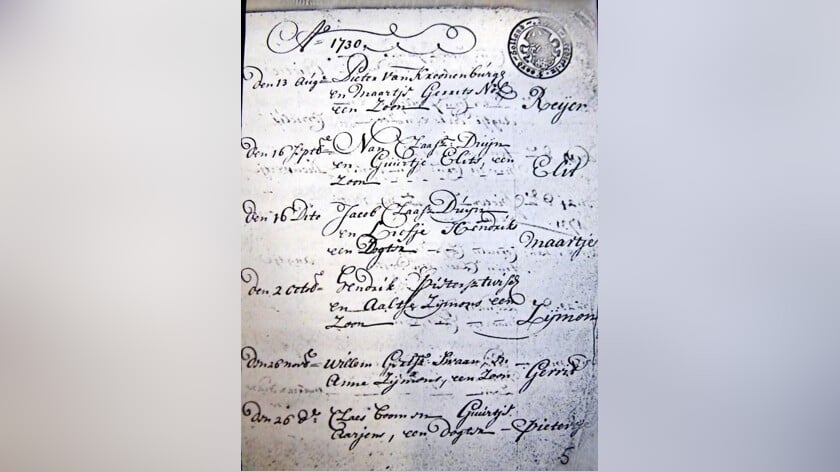 Ao 1730
Den 13 Augs Pieter Van Kroonenburg
en Maartjs Gerrits Nol
een Zoon Reijer
Den 16 Sptbr Nan Claasz Duijn
en Guurtje Elits, een
Zoon Elit
Den 16 Dito Jacob Claasz Duijn
en Liefje Hendrik
een Dogter Maartje
Den 2 Octobr Hendrik
en Aaltje Zijmons een
Zoon Zijmon
Den 26 Novr Willem Swaan, en
Anne Zijmons, een Zoon Gerrit
Den 26 Dr Claes Boom en Guurtjs
Aarjens, een Dogter Pieter
5